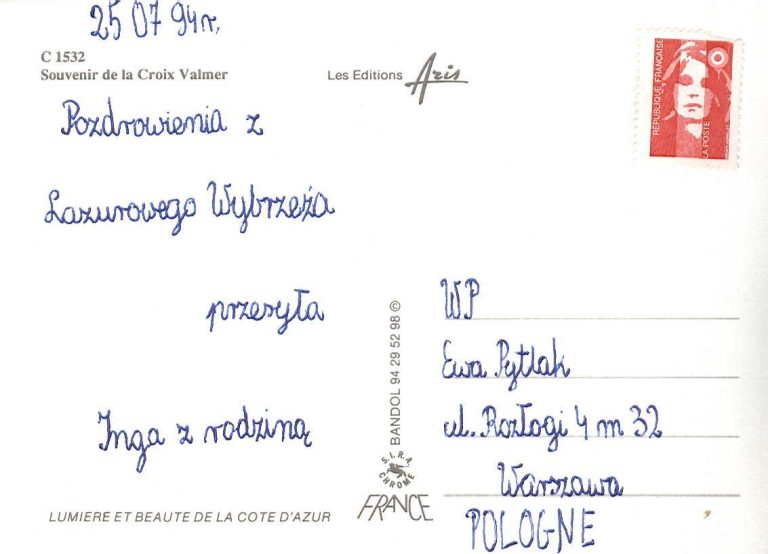 25 07 94r.
C 1532
Souvenir de la Croix Valmer
Les Editions Aris
Pozdrowienia z
Lazurowego Wybrzeża
przesyła
Inga z rodziną
LUMIERE ET BEAUTE DE LA COTE D'AZUR
REPUBLIQUE FRANÇAISE
LA POSTE
BANDOL 94 29 52 98 ©
S.I.R.A.
CHROME
FRANCE
WP
Ewa Pytlak
ul. Rozłogi 4 m 32
Warszawa
POLOGNE